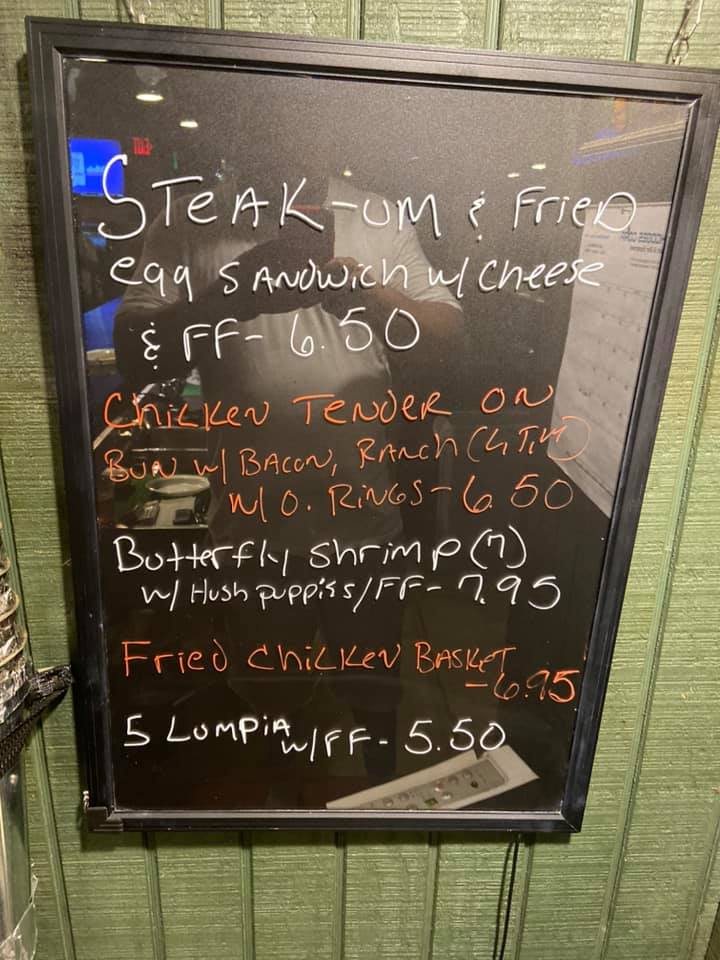 STEAK-UM & FRIED
egg SANDWICH w/ Cheese
& FF- 6.50
CHICKEN TENDER ON
BUN w/ BACON, RANCH
w/ O. RINGS- 6.50
Butterfly Shrimp (7)
w/ Hush puppies/FF- 7.95
FRIED CHICKEN BASKET
- 6.95
5 LUMPIA w/FF- 5.50